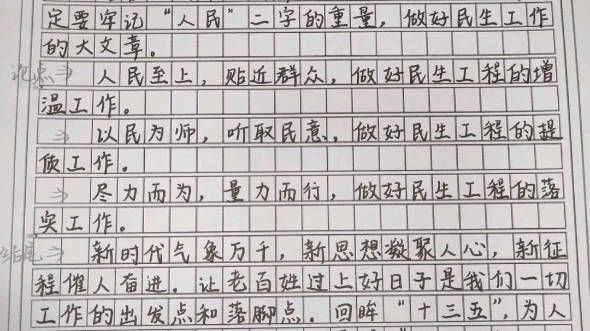 定要牢记“人民”二字的重量，做好民生工作
的大文章。
论点⇒ 人民至上，贴近群众，做好民生工程的增
温工作。
⇒ 以民为师，听取民意，做好民生工程的提
质工作。
⇒ 尽力而为，量力而行，做好民生工程的落
实工作。
结尾⇒ 新时代气象万千，新思想凝聚人心，新征
程催人奋进。让老百姓过上好日子是我们一切
工作的出发点和落脚点。回眸“十三五”，为人